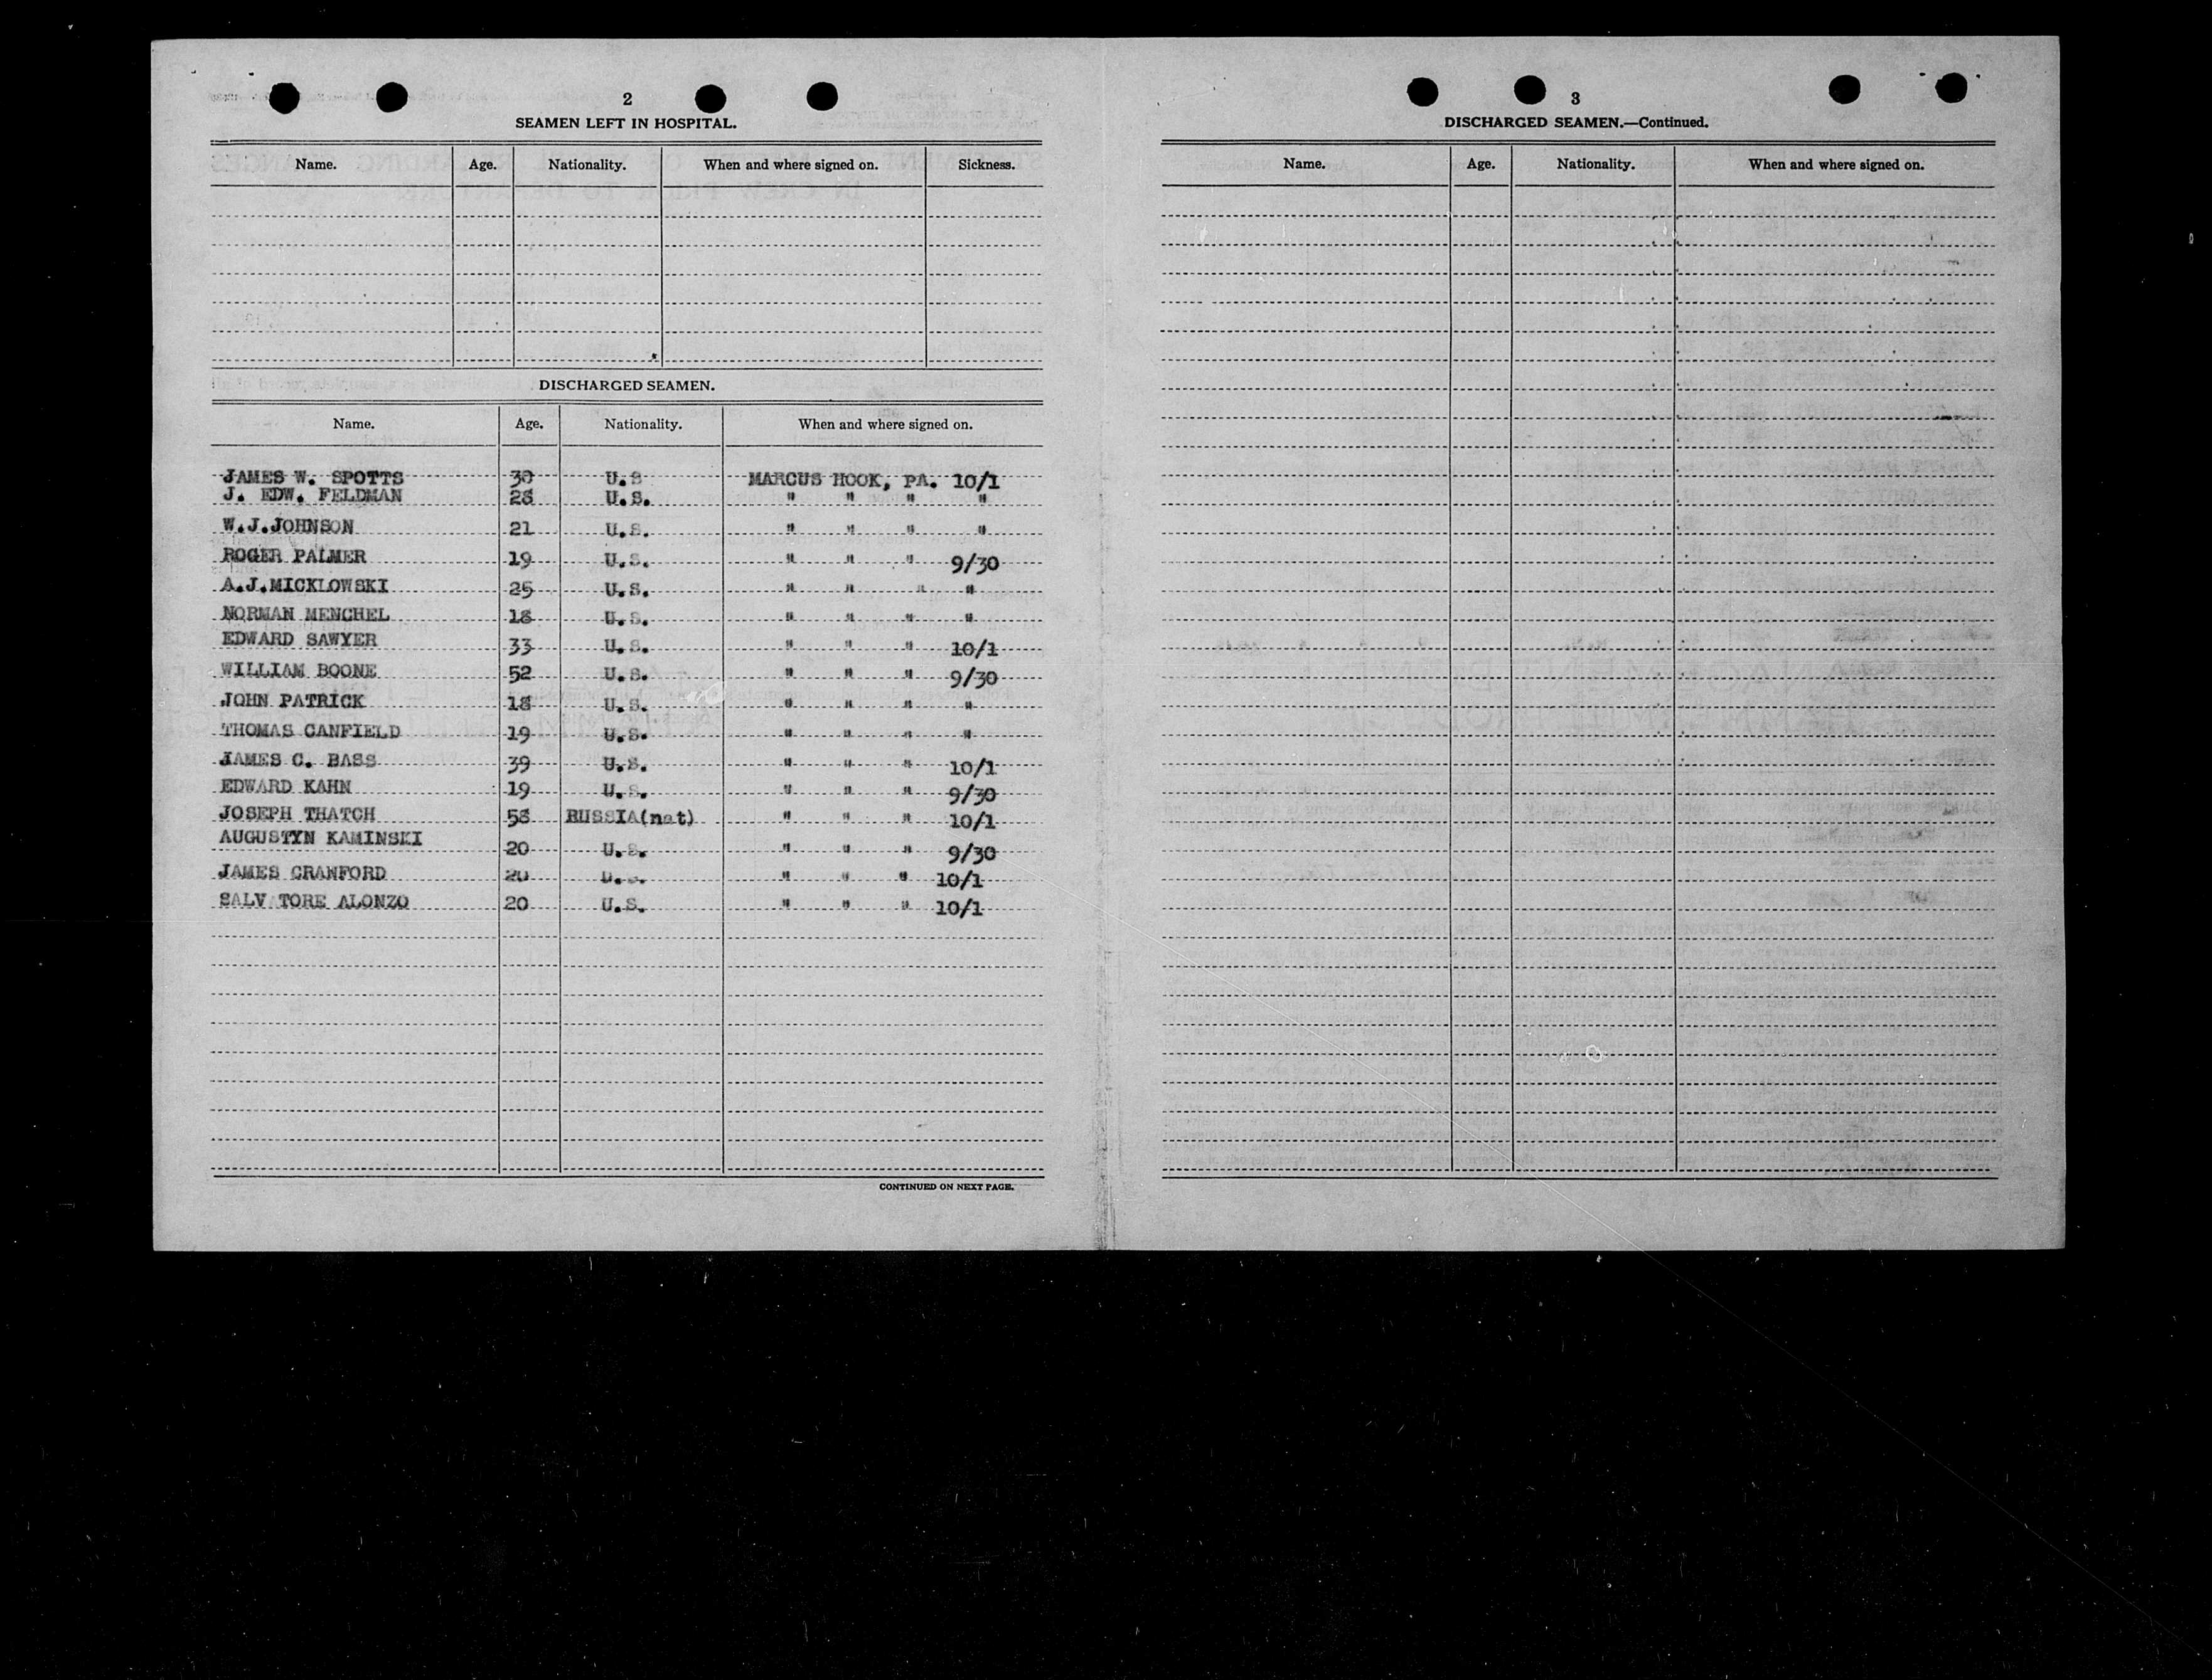 2
SEAMEN LEFT IN HOSPITAL.
Name. Age. Nationality. When and where signed on. Sickness.
DISCHARGED SEAMEN.
Name. Age. Nationality. When and where signed on.
JAMES W. SPOTTS 30 U.S MARCUS HOOK, PA. 10/1
J. EDW. FELDMAN 28 U.S. " " " "
W.J.JOHNSON 21 U.S. " " " "
ROGER PALMER 19 U.S. " " " 9/30
A.J.MICKLOWSKI 25 U.S. " " " "
NORMAN MENCHEL 18 U.S. " " " "
EDWARD SAWYER 33 U.S. " " " 10/1
WILLIAM BOONE 52 U.S. " " " 9/30
JOHN PATRICK 18 U.S. " " " "
THOMAS CANFIELD 19 U.S. " " " "
JAMES C. BASS 39 U.S. " " " 10/1
EDWARD KAHN 19 U.S. " " " 9/30
JOSEPH THATCH 58 RUSSIA(nat) " " " 10/1
AUGUSTYN KAMINSKI 20 U.S. " " " 9/30
JAMES CRAWFORD 20 U.S. " " " 10/1
SALV TORE ALONZO 20 U.S. " " " 10/1
CONTINUED ON NEXT PAGE.
3
DISCHARGED SEAMEN.—Continued.
Name. Age. Nationality. When and where signed on.